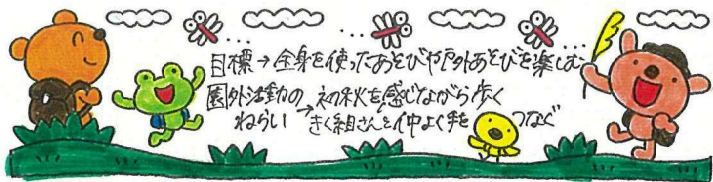 目標→全身を使ったあそびや戸外あそびを楽しむ
園外活動の→初秋を感じながら歩く
ねらい きく組さんと仲よく手をつなぐ